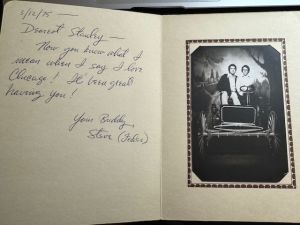 5/12/75 —
Dearest Stanley —
Now you know what I
mean when I say I love
Chicago! It's been great
having you!
Your Buddy,
Steve (Fehér)